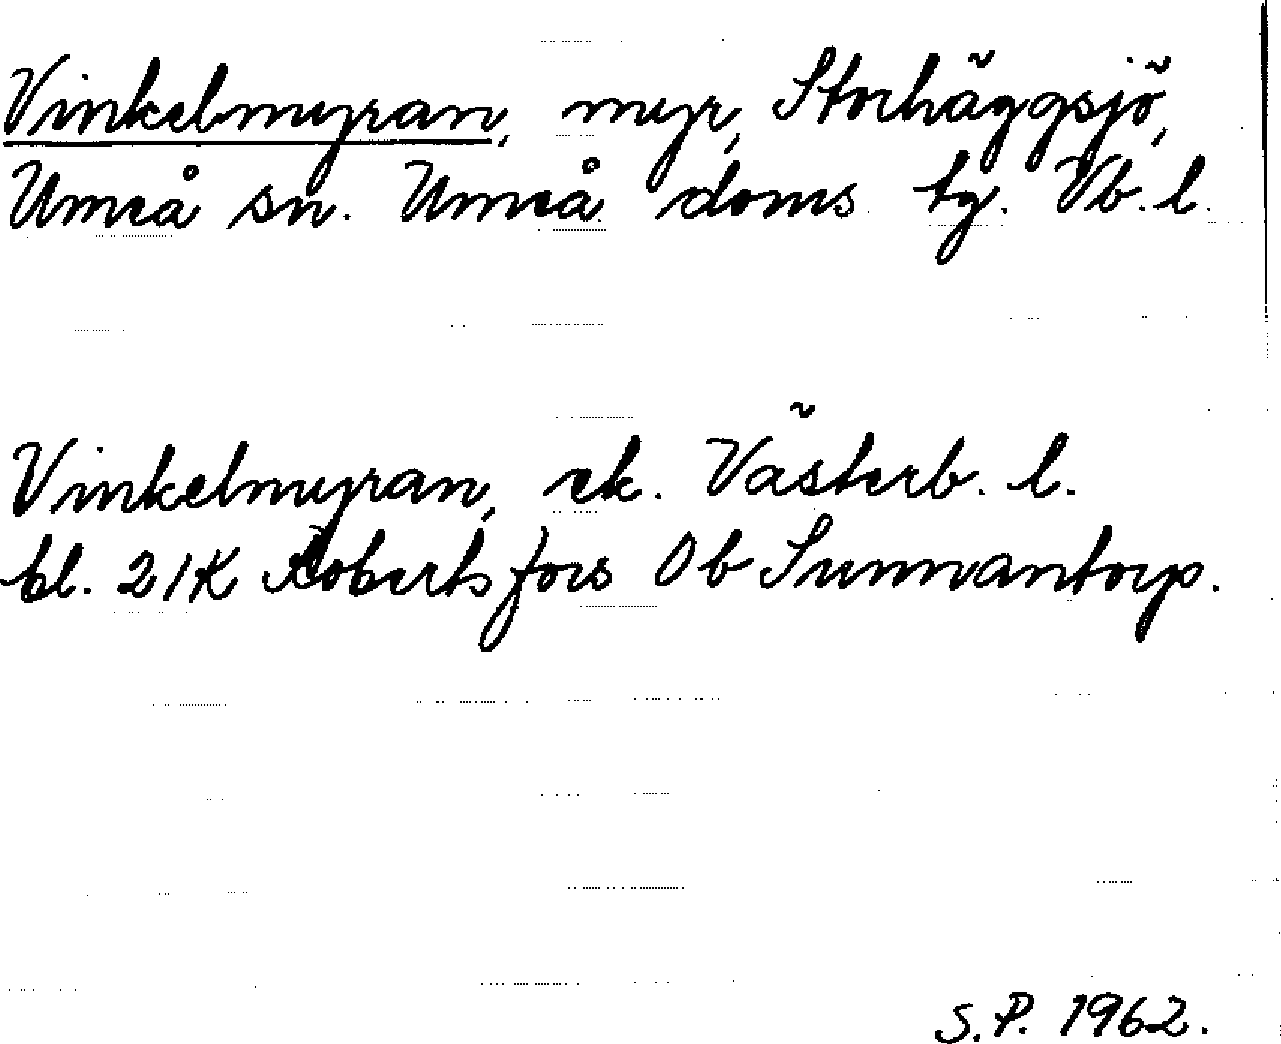 Vinkelmyran, myr, Storhäggsjö,
Umeå sn. Umeå doms tg. Vb. l.
Vinkelmyran, ek. Västerb. l.
bl. 21K Robertsfors Ob Sunnantorp.
S.P. 1962.